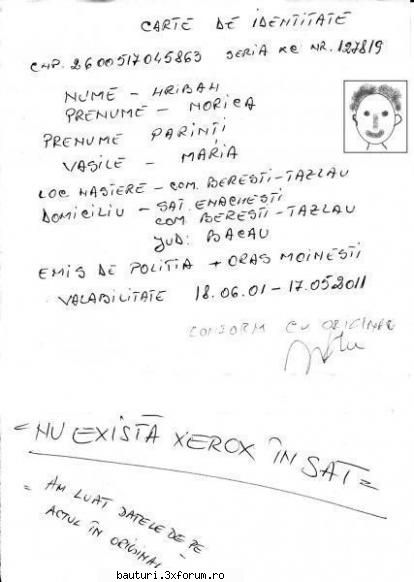 CARTE DE IDENTITATE
CNP. 2600517045863 SERIA XC NR. 127819
NUME - HRIBAN
PRENUME - NORICA
PRENUME PARINȚII
VASILE - MARIA
LOC NASTERE - COM. BERESTI-TAZLAU
DOMICILIU - SAT. ENACHESTI
COM BERESTI-TAZLAU
JUD: BACAU
EMIS DE POLITIA + ORAS MOINESTI
VALABILITATE 18.06.01 - 17.05.2011
CONFORM CU ORIGINAL
= NU EXISTĂ XEROX ÎN SAT =
= AM LUAT DATELE DE PE
ACTUL ÎN ORIGINAL
bauturi.3xforum.ro